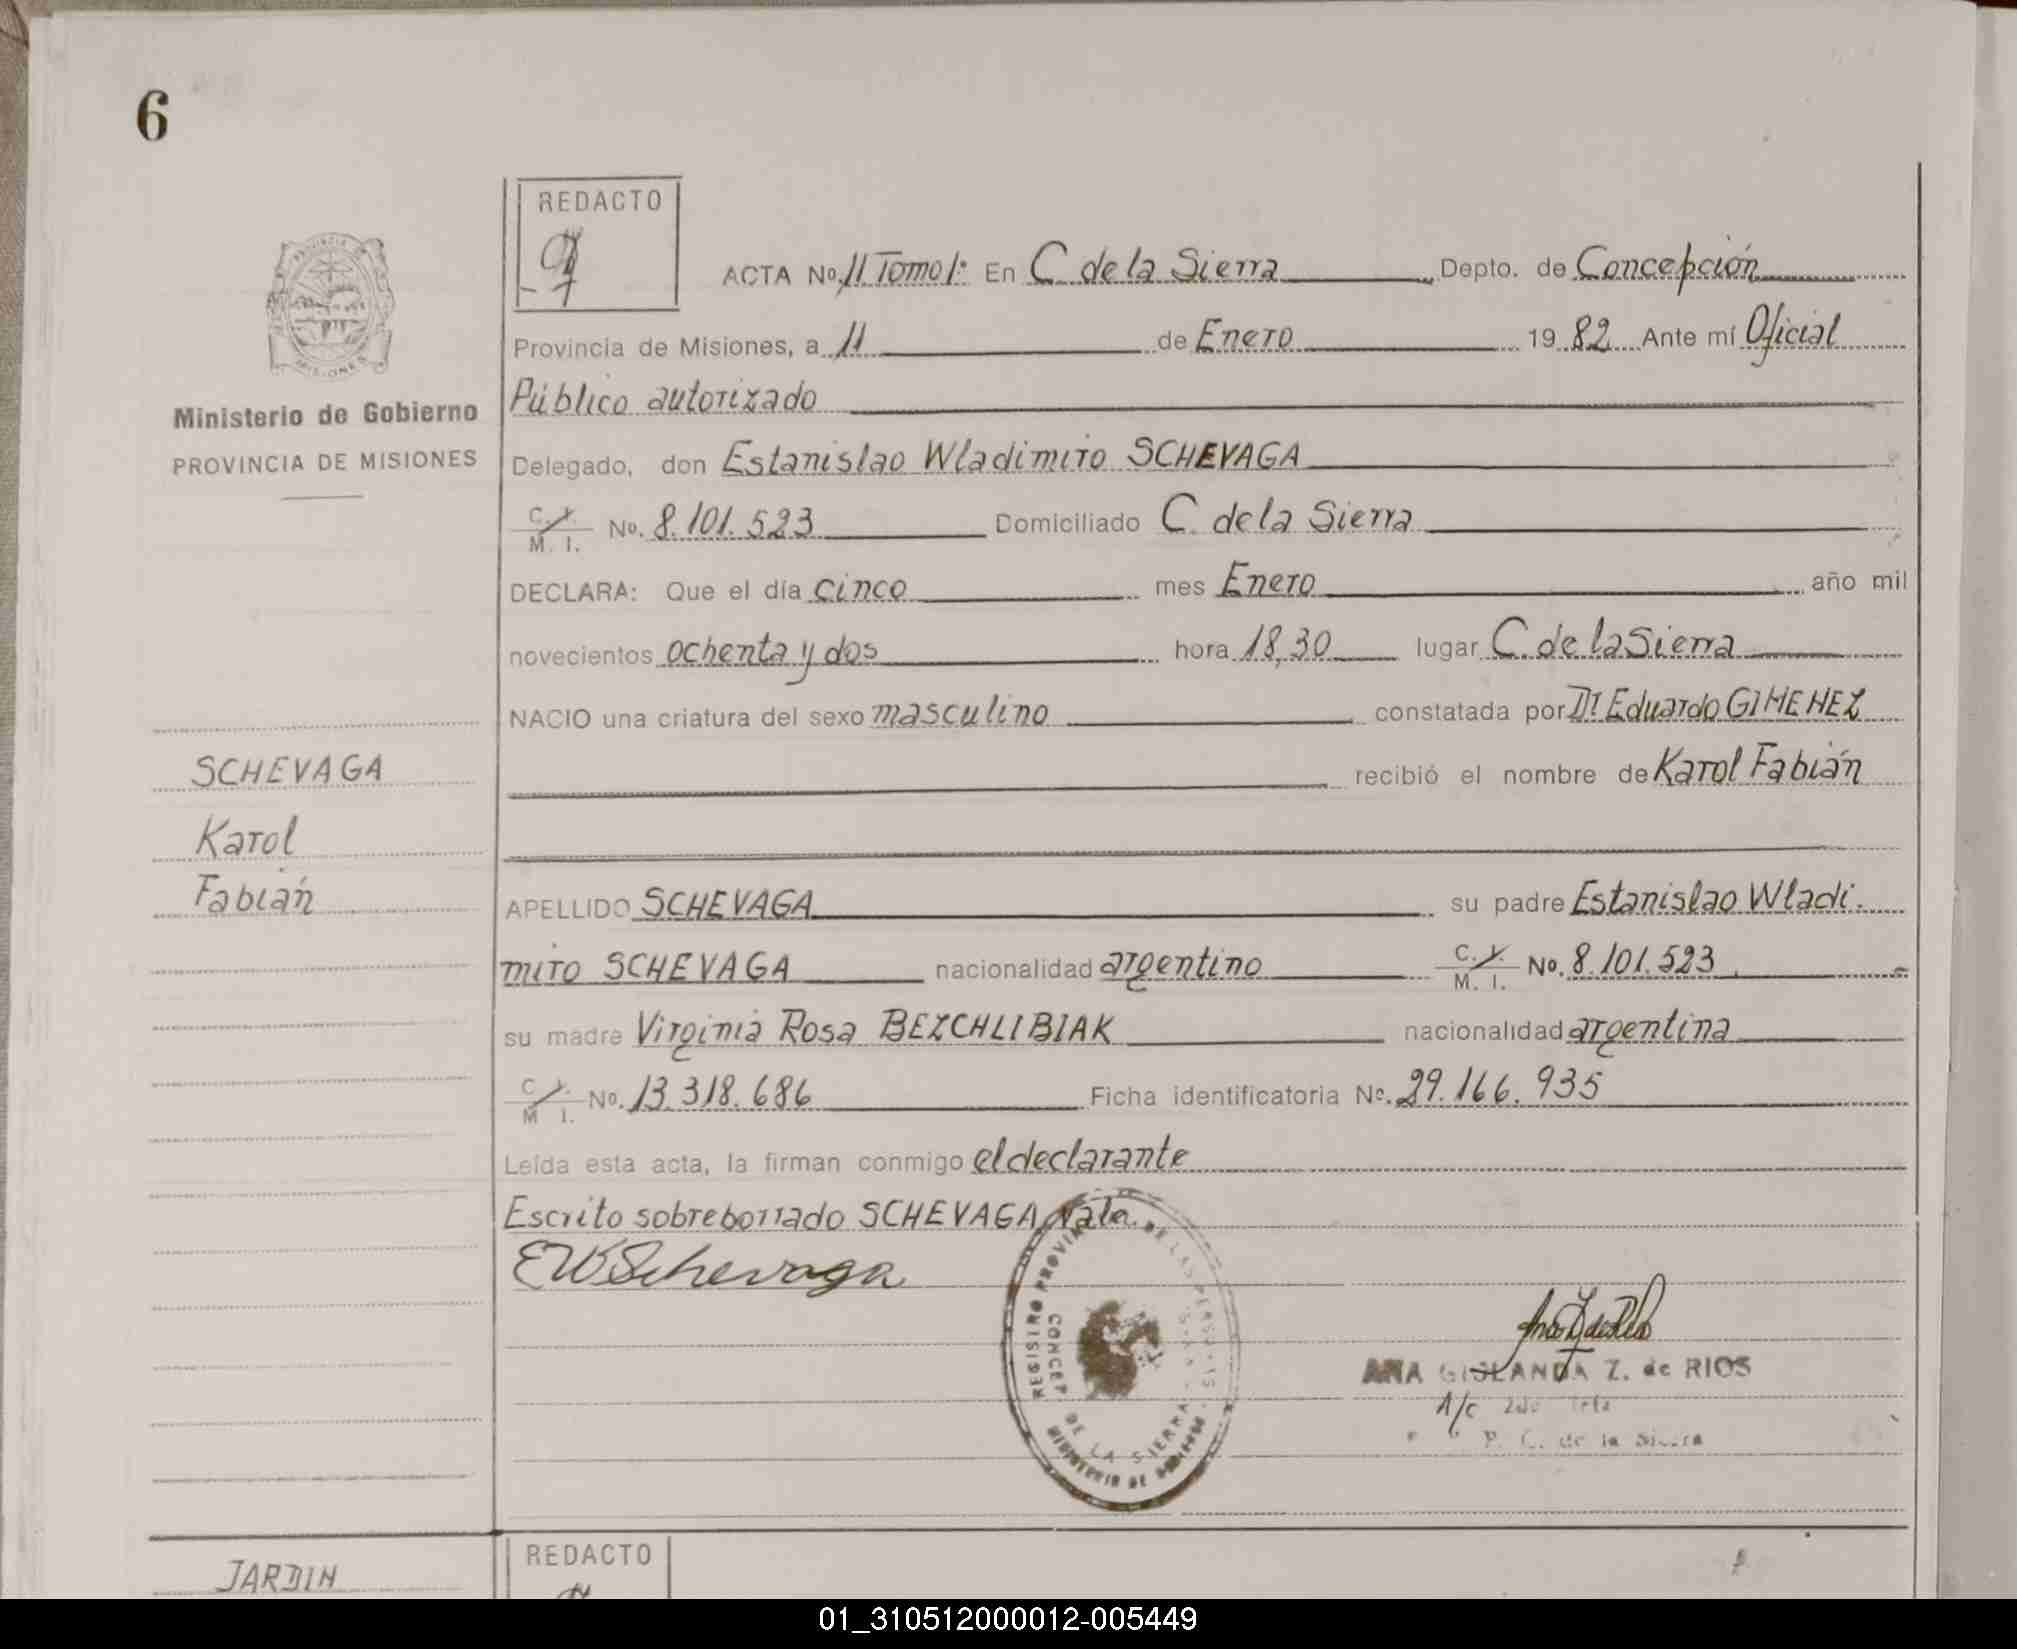 6
REDACTO
ACTA No. 11 Tomo 1º En C. de la Sierra Depto. de Concepción
Provincia de Misiones, a 11 de Enero 19 82 Ante mí Oficial
Público autorizado
Ministerio de Gobierno
PROVINCIA DE MISIONES
Delegado, don Estanislao Wladimiro SCHEVAGA
C. I. M. I. No. 8.101.523 Domiciliado C. de la Sierra
DECLARA: Que el día cinco mes Enero año mil
novecientos ochenta y dos hora 18,30 lugar C. de la Sierra
NACIO una criatura del sexo masculino constatada por Dr Eduardo GIMENEZ
recibió el nombre de Karol Fabián
SCHEVAGA
Karol
Fabián
APELLIDO SCHEVAGA su padre Estanislao Wladi.
miro SCHEVAGA nacionalidad argentino C. I. M. I. No. 8.101.523
su madre Virginia Rosa BEZCHLIBIAK nacionalidad argentina
C. I. M. I. No. 13.318.686 Ficha identificatoria No. 29.166.935
Leída esta acta, la firman conmigo el declarante
Escrito sobreborrado SCHEVAGA Vale.
EWSchevaga
REGISTRO PROVINCIAL DE LAS PERSONAS
CONCEPCION DE LA SIERRA
MINISTERIO DE GOBIERNO
ANA GISLANDA Z. de RIOS
A/c
P. C. de la Sierra
JARDIN
REDACTO
01_310512000012-005449